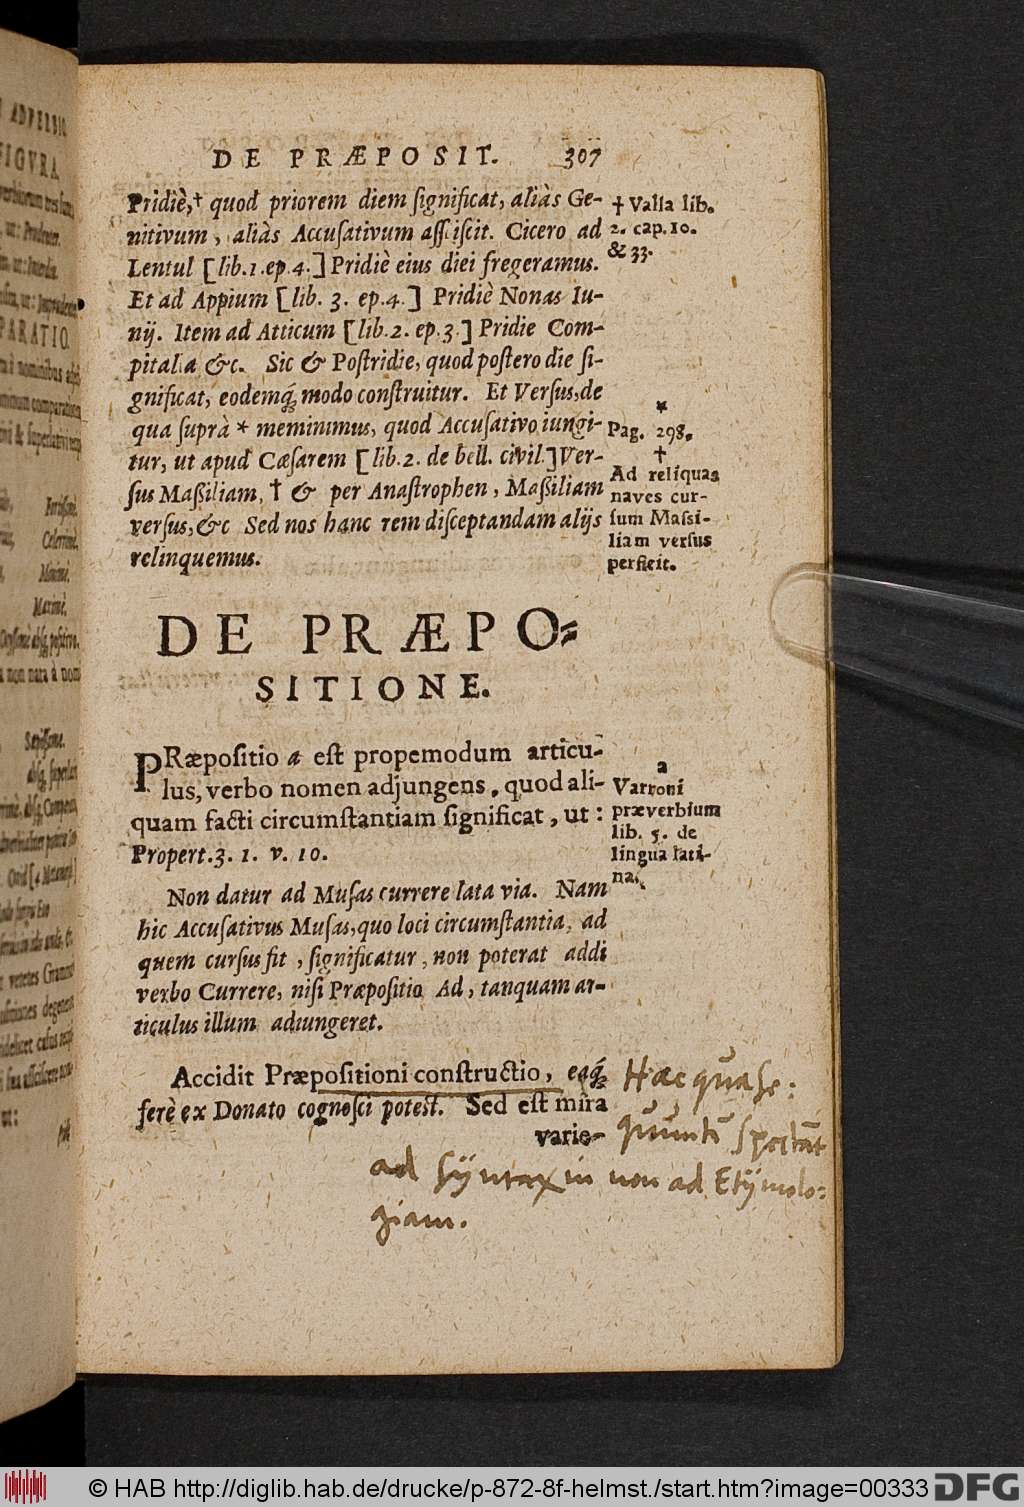 DE PRÆPOSIT. 307
Pridiè,† quod priorem diem ſignificat, aliàs Ge-
nitivum, aliàs Accuſativum aſſciſcit. Cicero ad
Lentul [lib.1.ep.4.] Pridiè eius diei fregeramus.
Et ad Appium [lib. 3. ep.4.] Pridiè Nonas Iu-
nij. Item ad Atticum [lib.2. ep.3.] Pridie Com-
pitalia &c. Sic & Poſtridie, quod poſtero die ſi-
gnificat, eodemq́; modo conſtruitur. Et Verſus, de
qua ſuprà * meminimus, quod Accuſativo iungi-
tur, ut apud Cæſarem [lib.2. de bell. civil.] Ver-
ſus Maßiliam, † & per Anaſtrophen, Maßiliam
verſus, &c Sed nos hanc rem diſceptandam alijs
relinquemus.
† Valla lib.
2. cap.10.
& 33.
*
Pag. 298.
†
Ad reliquas
naves cur-
ſum Maſsi-
liam verſus
perficit.
DE PRÆPO-
SITIONE.
PRæpoſitio a eſt propemodum articu-
lus, verbo nomen adjungens, quod ali-
quam facti circumſtantiam ſignificat, ut:
Propert.3. 1. v. 10.
a
Varroni
præverbium
lib. 5. de
lingua lati-
na.
Non datur ad Muſas currere lata via. Nam
hic Accuſativus Muſas, quo loci circumſtantia, ad
quem curſus fit, ſignificatur, non poterat addi
verbo Currere, niſi Præpoſitio Ad, tanquam ar-
ticulus illum adiungeret.
Accidit Præpoſitioni conſtructio, eaq́;
ferè ex Donato cognoſci poteſt. Sed eſt mira
varie-
Hac quæ ſe:
quuntr̄ ſpectāt
ad ſyntaxin non ad Etymolo:
giam.
© HAB http://diglib.hab.de/drucke/p-872-8f-helmst./start.htm?image=00333 DFG